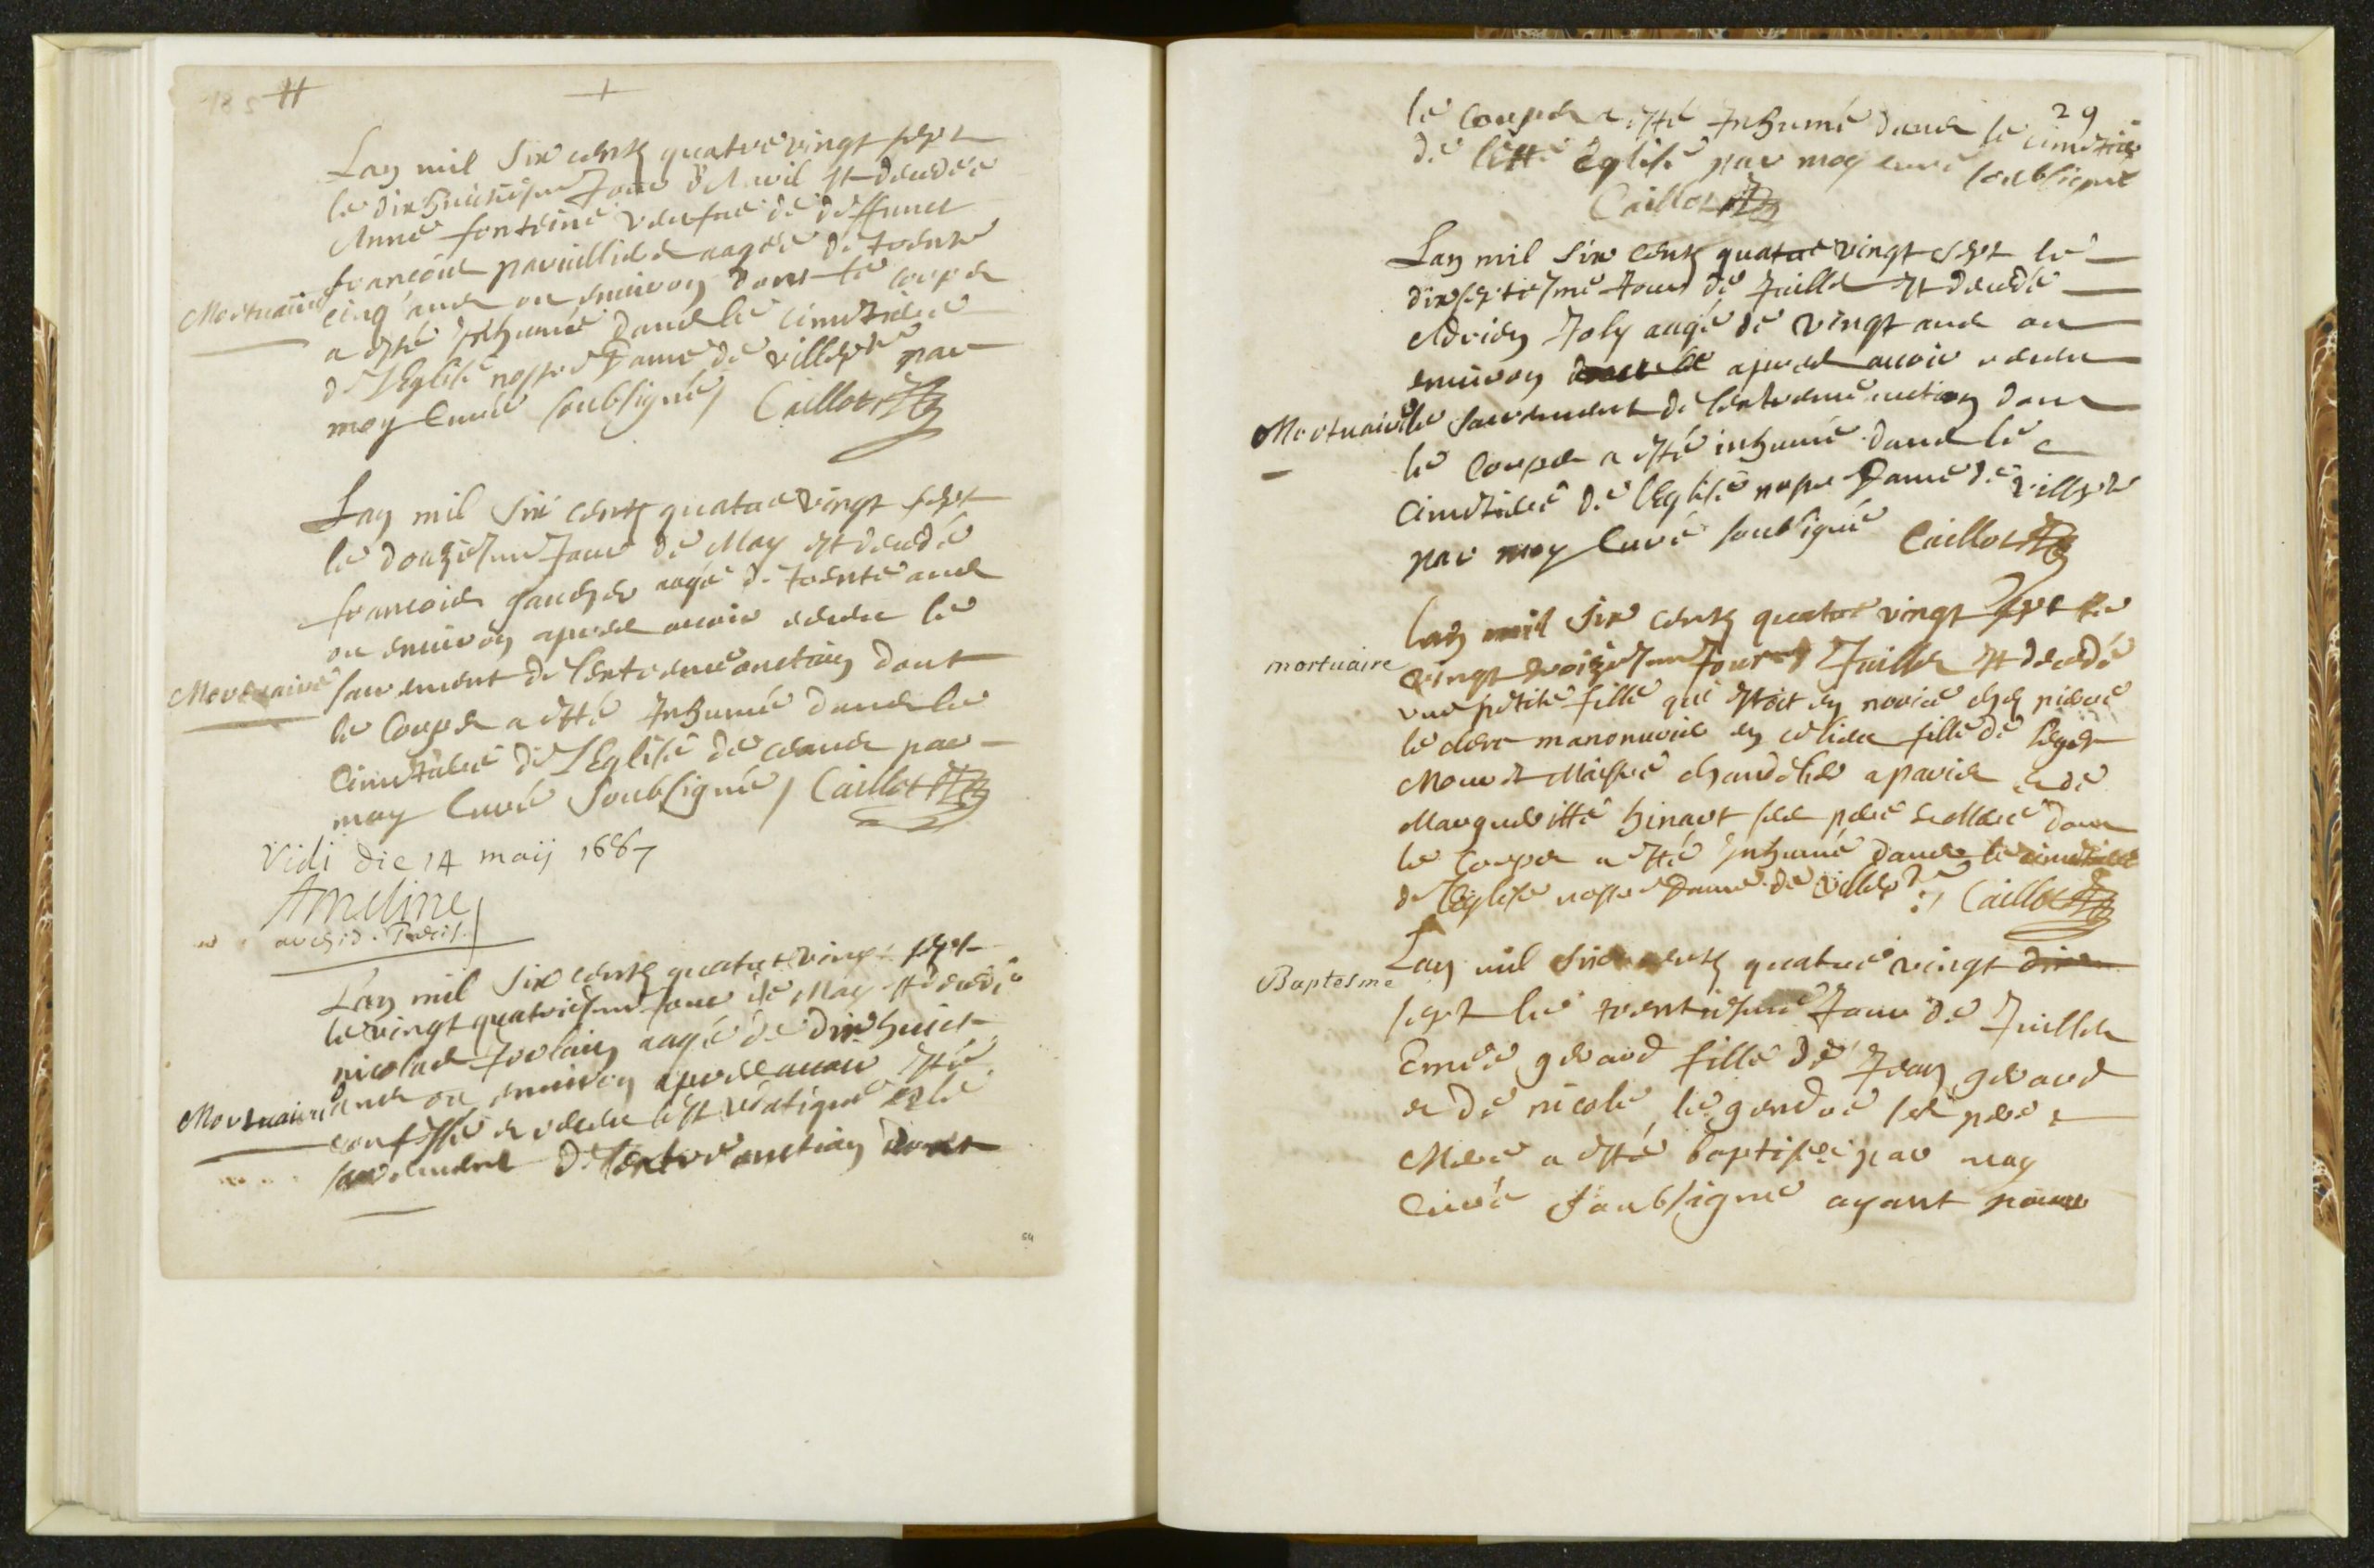 Lan mil Six cents quatre vingt sept
le dixhuitiesme Jour d'Avril est decedée
Anne fontaine veufue de deffunct
francois aagée de trente
Mortuaire
cinq ans ou enuiron dont le corps
a esté Inhumé dans le cimetiere
de l'Eglise nostre Dame de par
moy Curé soubsigné / Caillot
Lan mil Six cents quatre vingt sept
le douziesme Jour de May est decedé
francois aagé de trente ans
ou enuiron apres auoir receu le
Mortuaire
sacrement de l'extreme onction dont
le Corps a esté Inhumé dans le
Cimetiere de L'Eglise de ceans par
moy Curé Soubsigné / Caillot
Vidi die 14 maij 1687
Ameline
archid. Paris.
Lan mil Six cents quatre vingt sept
le vingt quatriesme Jour de May est decedé
nicolas aagé de dixhuict
Mortuaire
ans ou enuiron apres auoir esté
confessé et receu le St viatique et le
sacrement de l'extreme onction dont
29
le corps a esté Inhumé dans le cimetiere
de Eglise par moy curé soubsigné
Caillot
Lan mil Six cents quatre vingt sept le
dixseptiesme Jour de Juillet est decedé
Adrien Joly aagé de vingt ans ou
enuiron apres auoir receu
Mortuaire
le sacrement de l'extreme onction dont
le Corps a esté inhumé dans le
Cimetiere de l'Eglise nostre Dame de
par moy Curé soubsigné Caillot
Lan mil Six cents quatre vingt sept le
mortuaire
vingt troiziesme Jour Juillet est decedé
une petite fille qui estoit en chez pierre
le clerc manouurié en ce lieu fille de
Maistre chandelier a paris et de
Margueritte hinart ses pere et Mere dont
le Corps a esté Inhumé dans le cimetiere
de l'Eglise nostre Dame de Caillot
Baptesme
Lan mil Six cents quatre vingt
sept le trentiesme Jour de Juillet
Emée gerard fille de Jean gerard
et de nicole le gendre ses pere et
Mere a esté baptisée par moy
Curé Soubsigné ayant pour